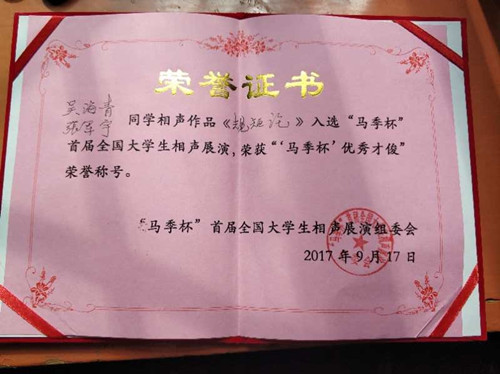 荣誉证书
吴海青
张军宇
同学相声作品《规矩论》入选“马季杯”
首届全国大学生相声展演,荣获“‘马季杯’优秀才俊”
荣誉称号。
“马季杯”首届全国大学生相声展演组委会
2017年9月17日